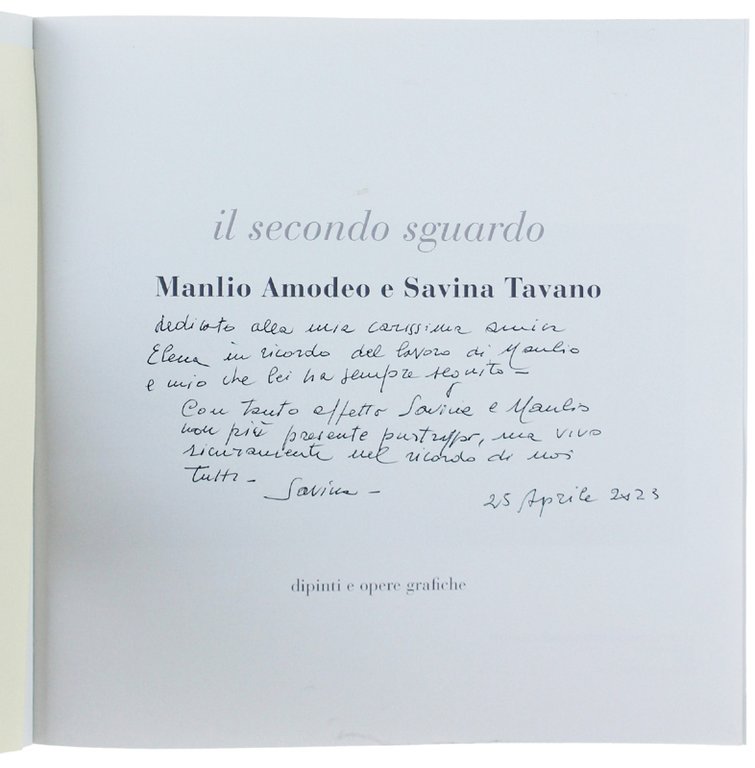 il secondo sguardo
Manlio Amodeo e Savina Tavano
dedicato alla mia carissima amica
Elena in ricordo del lavoro di Manlio
e mio che lei ha sempre seguito -
Con tanto affetto Savina e Manlio
non più presente purtroppo, ma vivo
sicuramente nel ricordo di noi
tutti -
Savina -
25 Aprile 2023
dipinti e opere grafiche